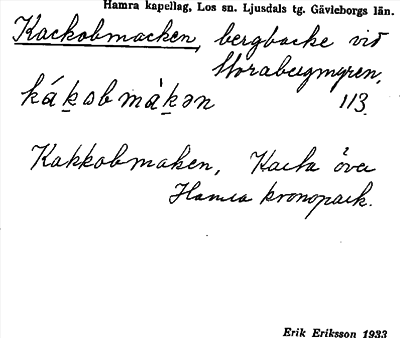 Hamra kapellag, Los sn. Ljusdals tg. Gävleborgs län.
Kackobmacken, bergbacke vid
Storabergmyren,
ká̱kobmà̱kən 113.
Kakkobmaken, Karta över
Hamra kronopark.
Erik Eriksson 1933